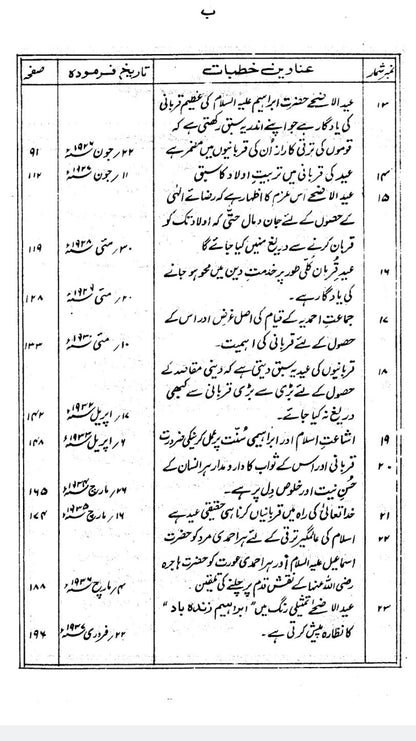 ب
نمبر شمار عناوین خطبات تاریخ فرمودہ صفحہ
۱۳ عید الاضحےٰ حضرت ابراہیم علیہ السلام کی عظیم قربانی
کی یادگار ہے جو اپنے اندر یہ سبق رکھتی ہے کہ
قوموں کی ترقی کا راز اُن کی قربانیوں میں مضمر ہے ۲۲؍ جون ۱۹۲۶ء ۹۱
۱۴ عید کی قربانی میں تربیتِ اولاد کا سبق ۱۱؍ جون ۱۹۲۷ء ۱۱۲
۱۵ عید الاضحےٰ اس عزم کا اظہار ہے کہ رضائے الٰہی
کے حصول کے لئے جان و مال حتّٰی کہ اولاد تک کو
قربان کرنے سے دریغ نہیں کیا جائے گا ۳۰؍ مئی ۱۹۲۸ء ۱۱۹
۱۶ عیدِ قُربان کلّی طور پر خدمتِ دین میں محو ہو جانے
کی یادگار ہے۔ ۲۰؍ مئی ۱۹۲۹ء ۱۲۸
۱۷ جماعتِ احمدیہ کے قیام کی اصل غرض اور اس کے
حصول کے لئے قربانی کی اہمیت۔ ۱۰؍ مئی ۱۹۳۰ء ۱۳۳
۱۸ قربانیوں کی عید یہ سبق دیتی ہے کہ دینی مقاصد کے
حصول کے لئے بڑی سے بڑی قربانی سے کبھی
دریغ نہ کیا جائے۔ ۱۷؍ اپریل ۱۹۳۲ء ۱۴۲
۱۹ اشاعتِ اسلام اور ابراہیمی سُنّت پر عمل کرنیکی ضرورت ۶؍ اپریل ۱۹۳۳ء ۱۴۸
۲۰ قربانی اور اس کے ثواب کا دار و مدار ہر انسان کے
حُسنِ نیت اور خلوصِ دل پر ہے۔ ۲۶؍ مارچ ۱۹۳۴ء ۱۶۵
۲۱ خدا تعالیٰ کی راہ میں قربانیاں کرنا ہی حقیقی عید ہے ۱۶؍ مارچ ۱۹۳۵ء ۱۷۴
۲۲ اسلام کی عالمگیر ترقی کے لئے ہر احمدی مرد کو حضرت
اسماعیل علیہ السلام اور ہر احمدی عورت کو حضرت ہاجرہ
رضی اللہ عنہا کے نقش قدم پر چلنے کی تلقین۔ ۴؍ مارچ ۱۹۳۶ء ۱۸۸
۲۳ عید الاضحےٰ تمثیلی رنگ میں "ابراہیم زندہ باد"
کا نظارہ پیش کرتی ہے۔ ۲۲؍ فروری ۱۹۳۷ء ۱۹۶